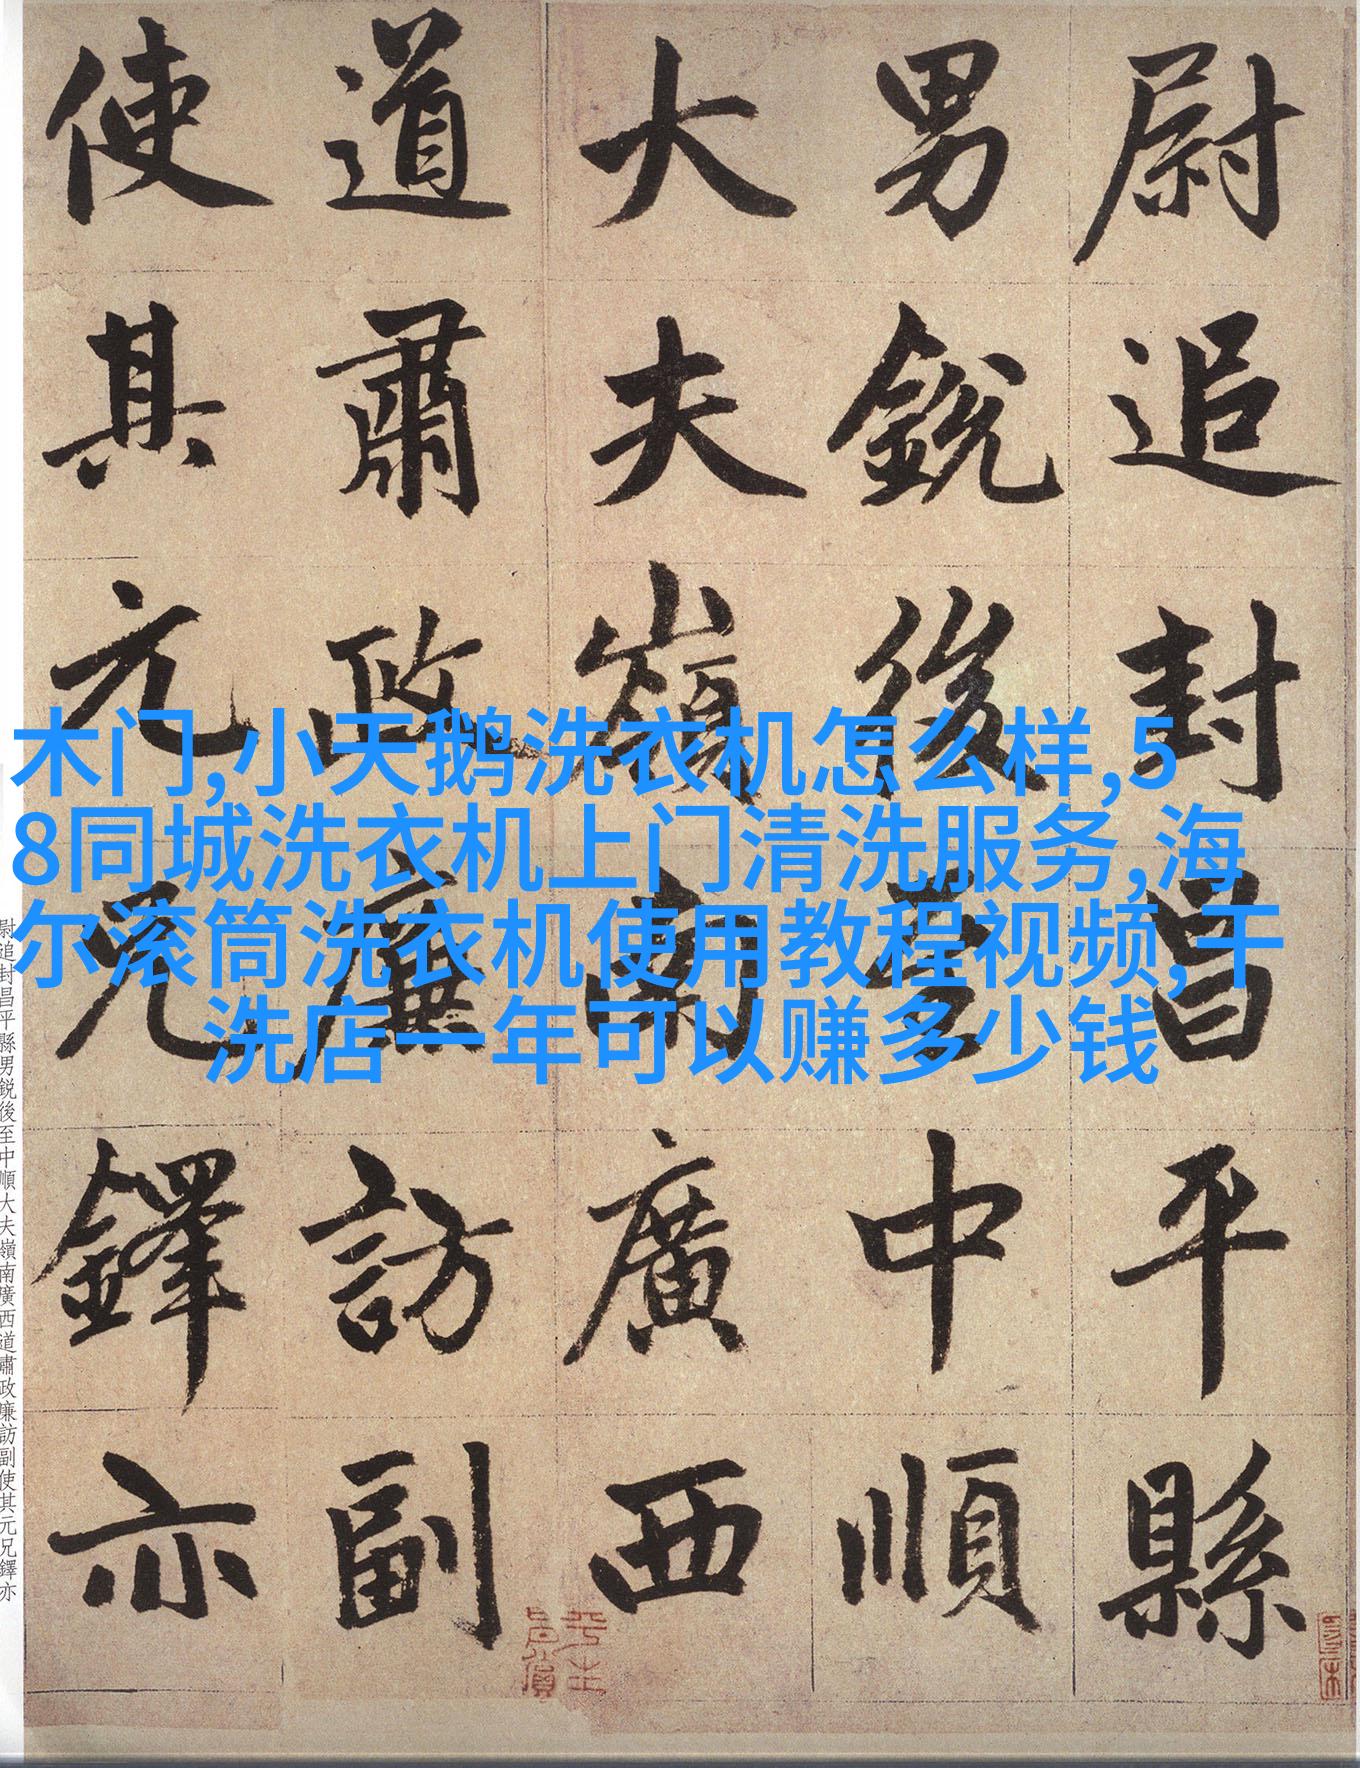 尉追封昌平縣
男銳後至中順
大夫嶺南廣西
道肅政廉訪副
使其元兄鐸亦
木门,小天鹅洗衣机怎么样,5
8同城洗衣机上门清洗服务,海
尔滚筒洗衣机使用教程视频,干
洗店一年可以赚多少钱
尉追封昌平縣男銳後至中順大夫嶺南廣西道肅政廉訪副使其元兄鐸亦